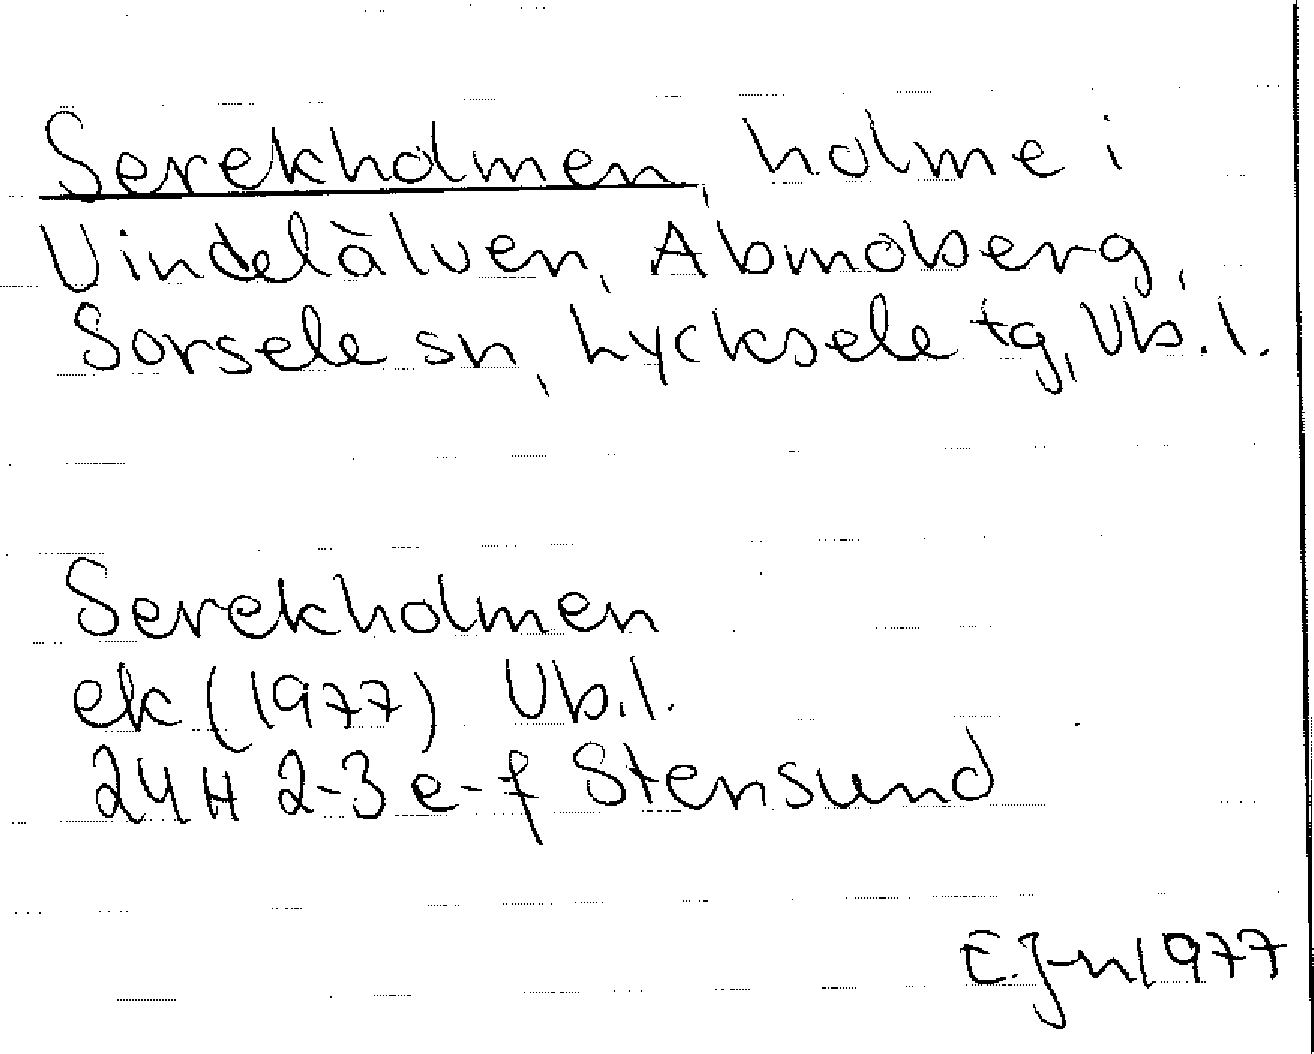 Serekholmen, holme i
Vindelälven, Abmoberg,
Sorsele sn, Lycksele tg, Vb.l.
Serekholmen
ek (1977) Vb.l.
24H 2-3 e-f Stensund
E.J-n 1977